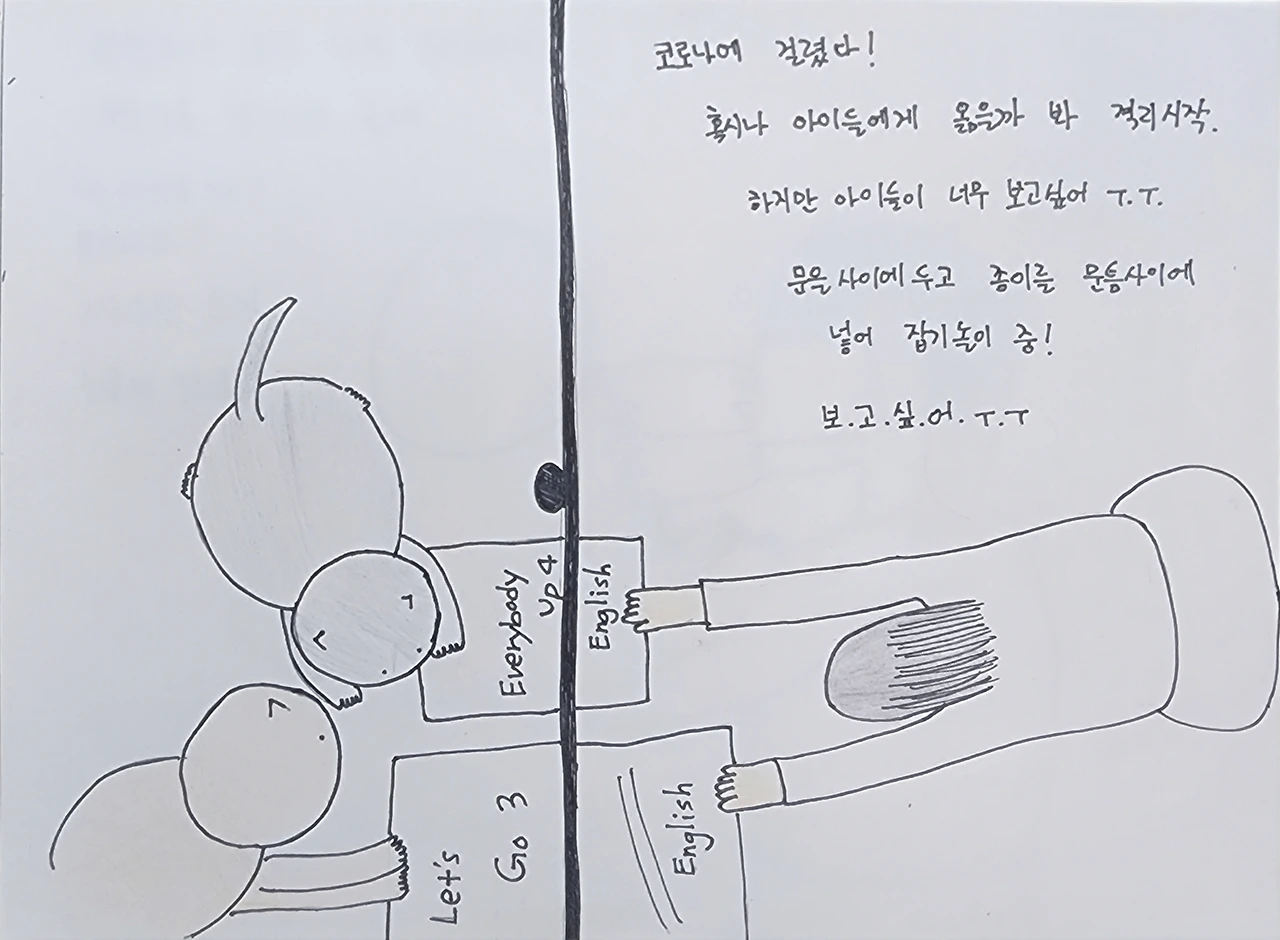 코로나에 걸렸다!
혹시나 아이들에게 옮을까 봐 격리시작.
하지만 아이들이 너무 보고싶어 T.T.
문을 사이에 두고 종이를 문틈사이에
넣어 잡기놀이 중!
보.고.싶.어.T.T
Everybody
Up 4
English
Let's
Go 3
English